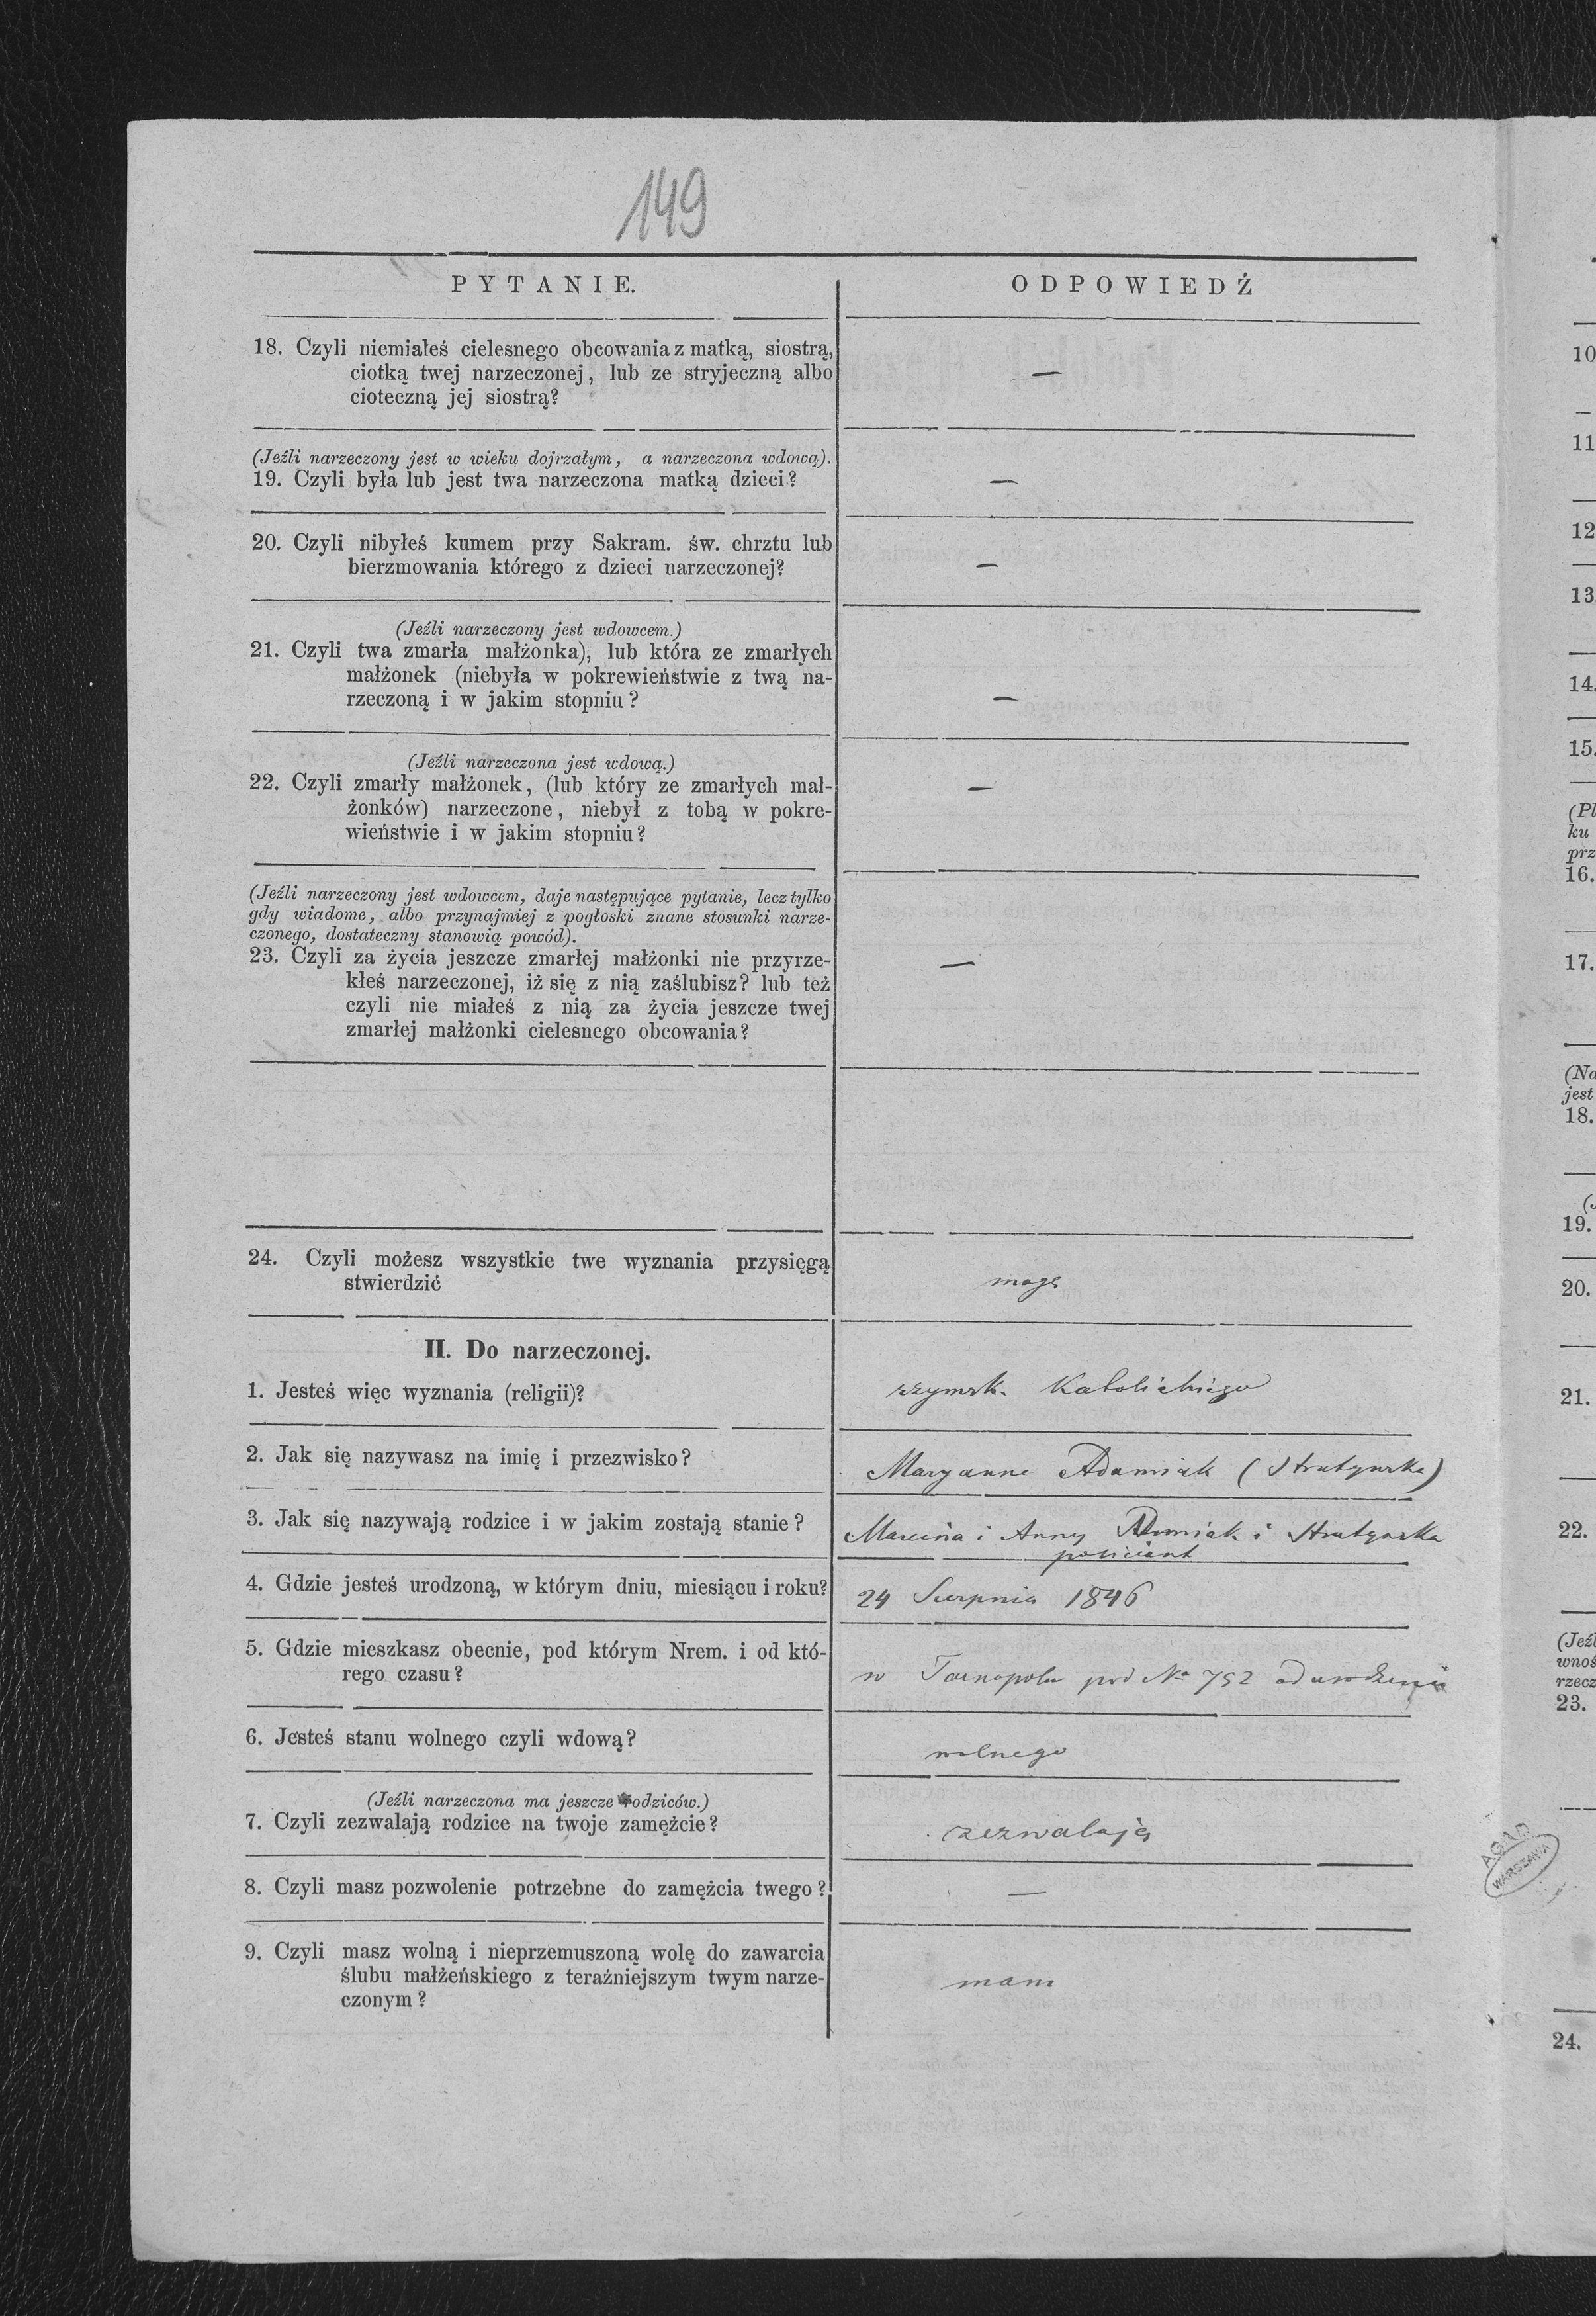 149
PYTANIE.
ODPOWIEDŹ
18. Czyli niemiałeś cielesnego obcowania z matką, siostrą,
ciotką twej narzeczonej, lub ze stryjeczną albo
cioteczną jej siostrą?
—
(Jeźli narzeczony jest w wieku dojrzałym, a narzeczona wdową).
19. Czyli była lub jest twa narzeczona matką dzieci?
—
20. Czyli nibyłeś kumem przy Sakram. św. chrztu lub
bierzmowania którego z dzieci narzeczonej?
—
(Jeźli narzeczony jest wdowcem.)
21. Czyli twa zmarła małżonka), lub która ze zmarłych
małżonek (niebyła w pokrewieństwie z twą na-
rzeczoną i w jakim stopniu?
—
(Jeźli narzeczona jest wdową.)
22. Czyli zmarły małżonek, (lub który ze zmarłych mał-
żonków) narzeczone, niebył z tobą w pokre-
wieństwie i w jakim stopniu?
—
(Jeźli narzeczony jest wdowcem, daje następujące pytanie, lecz tylko
gdy wiadome, albo przynajmiej z pogłoski znane stosunki narze-
czonego, dostateczny stanowią powód).
23. Czyli za życia jeszcze zmarłej małżonki nie przyrze-
kłeś narzeczonej, iż się z nią zaślubisz? lub też
czyli nie miałeś z nią za życia jeszcze twej
zmarłej małżonki cielesnego obcowania?
—
24. Czyli możesz wszystkie twe wyznania przysięgą
stwierdzić
mogę
II. Do narzeczonej.
1. Jesteś więc wyznania (religii)?
rzymsk. Katolickiego
2. Jak się nazywasz na imię i przezwisko?
Maryanna Adamiak
3. Jak się nazywają rodzice i w jakim zostają stanie?
Marcina i Anny i
4. Gdzie jesteś urodzoną, w którym dniu, miesiącu i roku?
24 Sierpnia 1846
5. Gdzie mieszkasz obecnie, pod którym Nrem. i od któ-
rego czasu?
w Tarnopolu pod No 752 od urodzenia
6. Jesteś stanu wolnego czyli wdową?
wolnego
(Jeźli narzeczona ma jeszcze rodziców.)
7. Czyli zezwalają rodzice na twoje zamężcie?
zezwalają
8. Czyli masz pozwolenie potrzebne do zamężcia twego?
—
9. Czyli masz wolną i nieprzemuszoną wolę do zawarcia
ślubu małżeńskiego z teraźniejszym twym narze-
czonym?
mam
10
11
12
13
14.
15.
(Pl
ku
prz
16.
17.
(Na
jest
18.
19.
20.
21.
22.
(Jeźl
wnoś
rzecz
23.
24.
AGAD
WARSZAWA